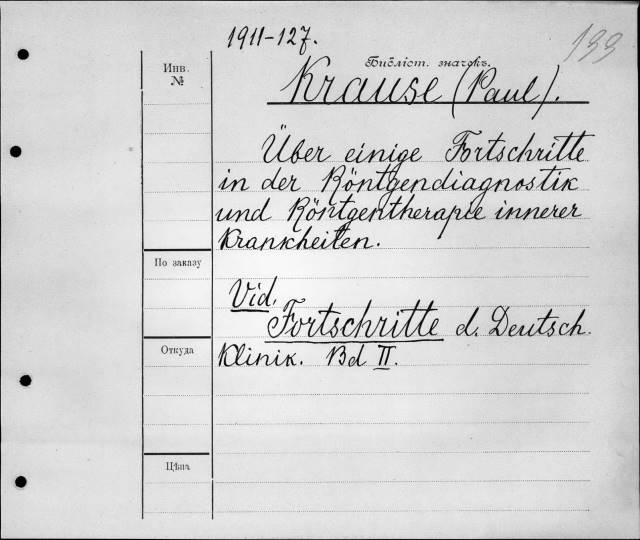 1911-127.
199
Библіот. значекъ.
Инв.
№
Krause (Paul).
Über einige Fortschritte
in der Röntgendiagnostik
und Röntgentherapie innerer
Krankheiten.
По заказу
Vid.
Fortschritte d. Deutsch.
Откуда
Klinik. Bd II.
Цѣна